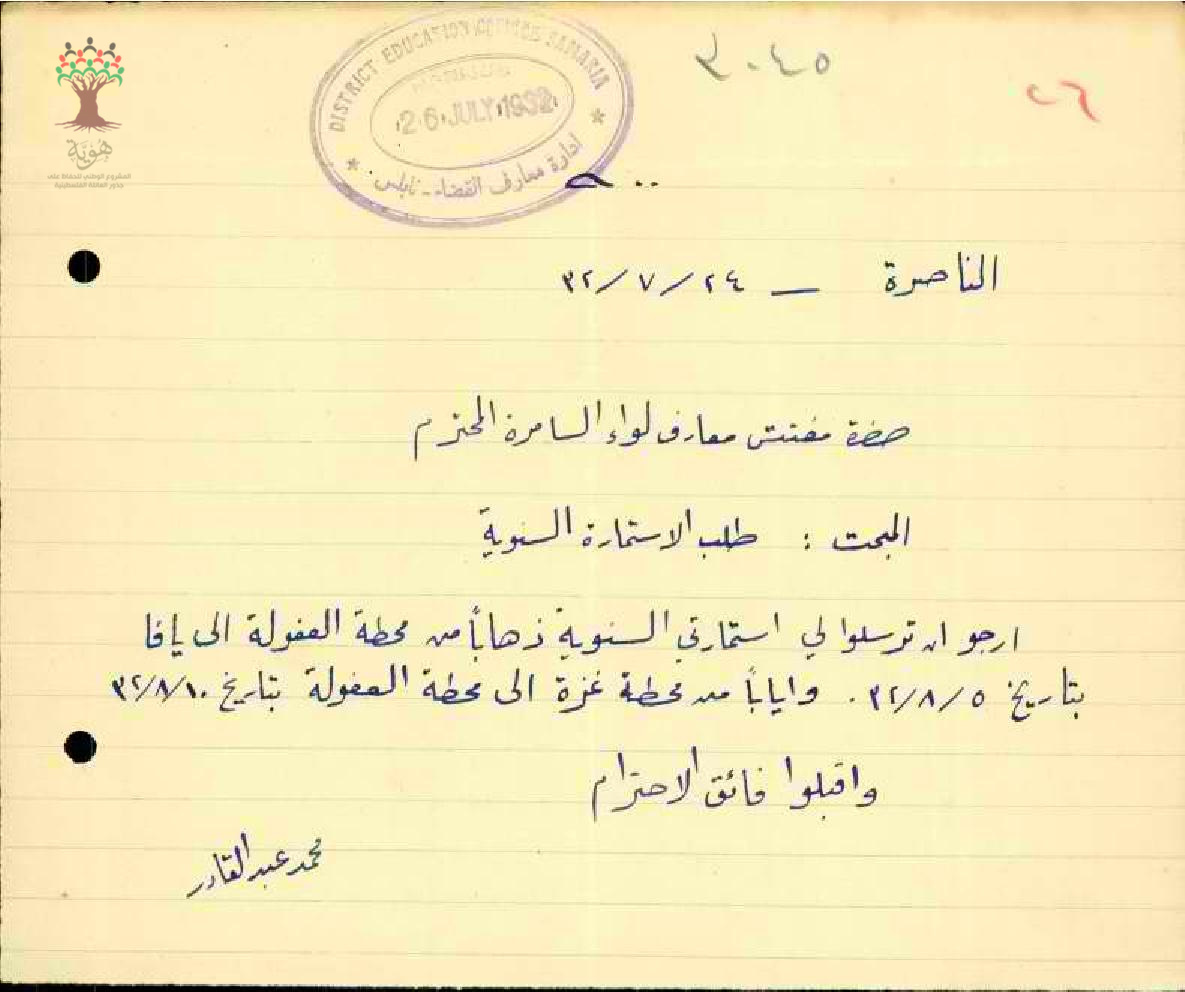 DISTRICT EDUCATION OFFICE SAMARIA
26 JULY 1932
ادارة معارف القضاء - نابلس
هُوِيَّة
المشروع الوطني للحفاظ على
جذور العائلة الفلسطينية
٢٦
الناصرة — ٢٤/٧/٣٢
حضرة مفتش معارف لواء السامرة المحترم
المبحث : طلب الاستمارة السنوية
ارجو ان ترسلوا لي استمارتي السنوية ذهاباً من محطة العفولة الى يافا
بتاريخ ٥/٨/٣٢. واياباً من محطة غزة الى محطة العفولة بتاريخ ١٠/٨/٣٢
واقبلوا فائق الاحترام
محمد عبد القادر